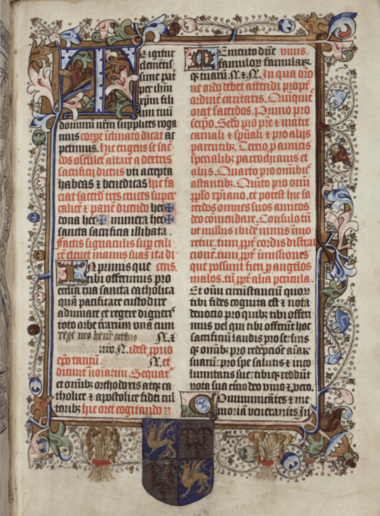 Te igitur
clemensi
sime pat
per ihm
xpm fili
um tuu
dominu nrm supplices roga
mus corpe iclinato dicat ac
petimus. hic erigens se
osculet altare a dextris
sacrificij dicens uti accepta
habeas & benedicas hic fa
ciat sacerdos tres cruces super
calice & pane dicendo hec
dona hec munera hec
sancta sacrificia illibata.
factis signaculis sup cali
ce eleuat manus suas ita di
In primis que cens.
tibi offerimus pro
ecclia tua sancta catholica
qua pacificare custodire
adunare et regere digneris
toto orbe terraru una cum
rege nro
nro. N. idest prprio
epo tantu. N. et
dicunt noiatim. Sequatr
et omnibus orthodoxis atqz ca
tholice & apostolice fidei cul
toribus hic oret cogitando
Memento dne viuis.
famulor famularu
qz tuaru N. & N. In qua oro
ne ordo debet attendi propter
ordinem caritatis. Quinquies
orat sacerdos. Primo pro se
ipso. Secundo pro patre & matre
carnali & spuali & pro aliis
parentibus. Tercio pro amicis
specialibus parrochianis et
aliis. Quarto pro omnibus
astantibus. Quinto pro omni
pplo xpiano. et potest hic sa
cerdos omnes suos amicos
deo comendare. Consulo tn
ut nullus ibidem nimis imo
retur. tum propter cordis distrac
tionem. tum propter imissiones
que possunt fieri per angelos
malos. tum propter alia pericula.
Et omniu circumstantiu quoru
tibi fides cognita est & nota
deuotio pro quibus tibi offeri
mus vel qui tibi offerunt hoc
sacrificiu laudis pro se suis
qz omnibus pro redemptione aiaru
suaru: pro spe salutis & inco
lumitatis sue: tibiqz reddunt
vota sua eterno deo viuo & vero.
Communicantes & me
moriam venerantes In